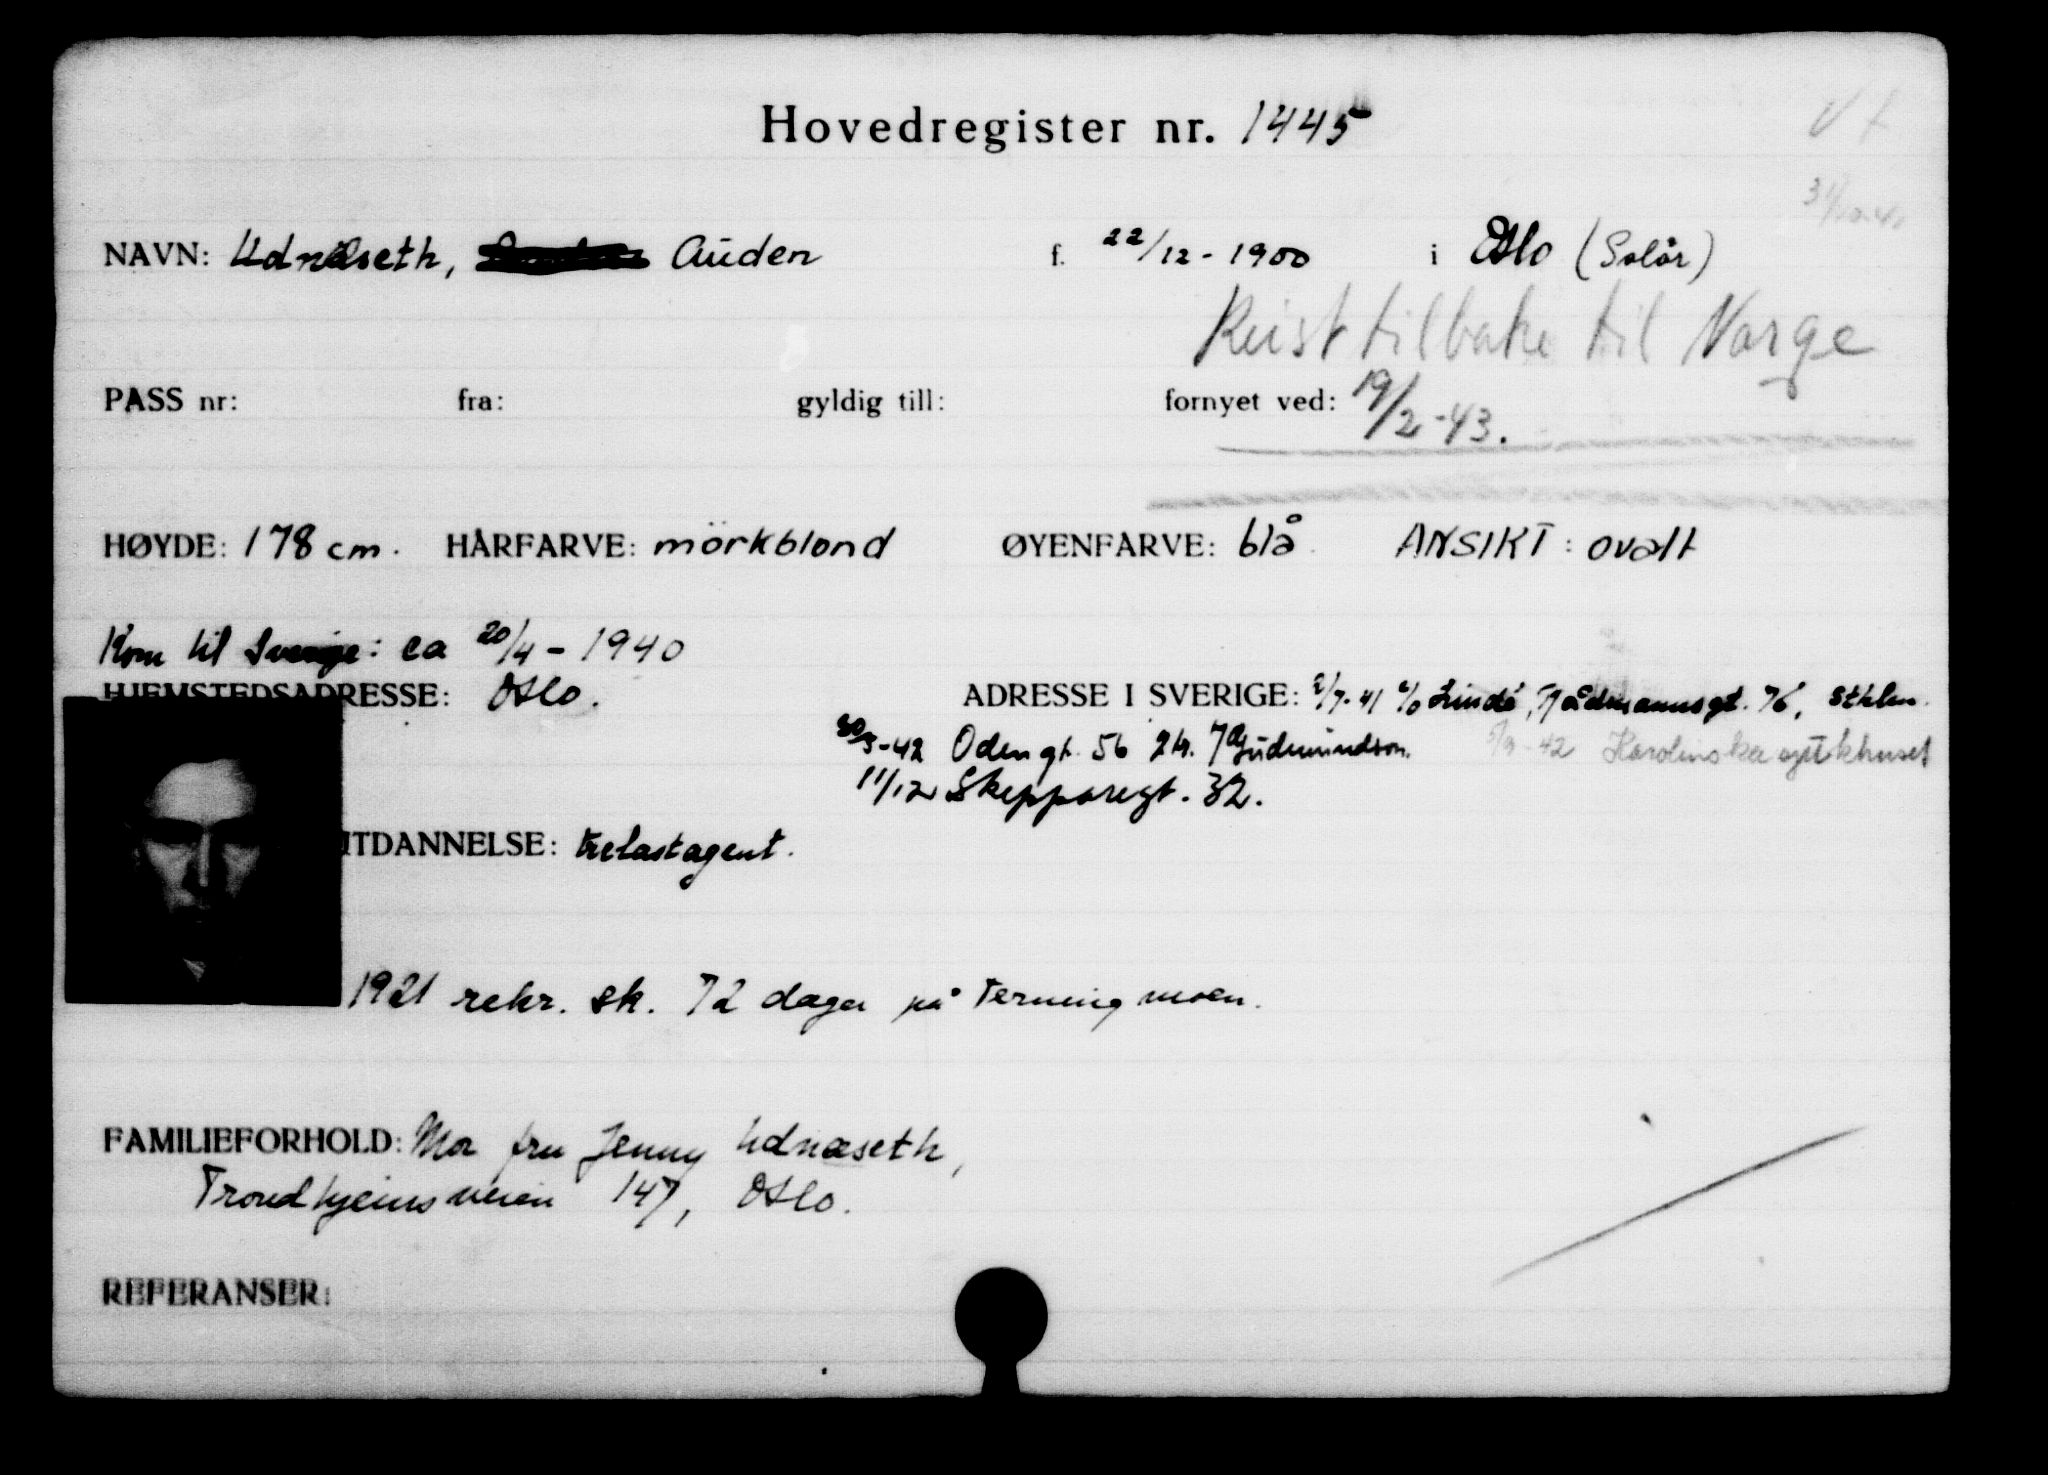 Hovedregister nr. 1445
NAVN: Udnæseth, Auden f. 22/12 - 1900 i Oslo (Solör)
Reist tilbake til Norge
PASS nr: fra: gyldig till: fornyet ved: 19/2 - 43.
HØYDE: 178 cm. HÅRFARVE: mörkblond ØYENFARVE: blå ANSIKT: ovalt
Kom til Sverige: ca 20/4 - 1940
HJEMSTEDSADRESSE: Oslo. ADRESSE I SVERIGE: 2/7-41 c/o Lindé, Rådmannsgt. 76, Sthlm.
30/3-42 Odengt. 56 Gudmundson. 42 Karolinska sjukhuset
11/12 Skepparegt. 32.
UTDANNELSE: trelastagent.
1921 rekr. sk. 72 dager på Terningmoen.
FAMILIEFORHOLD: Mor fru Jenny Udnæseth,
Trondhjemsveien 147, Oslo.
REFERANSER: